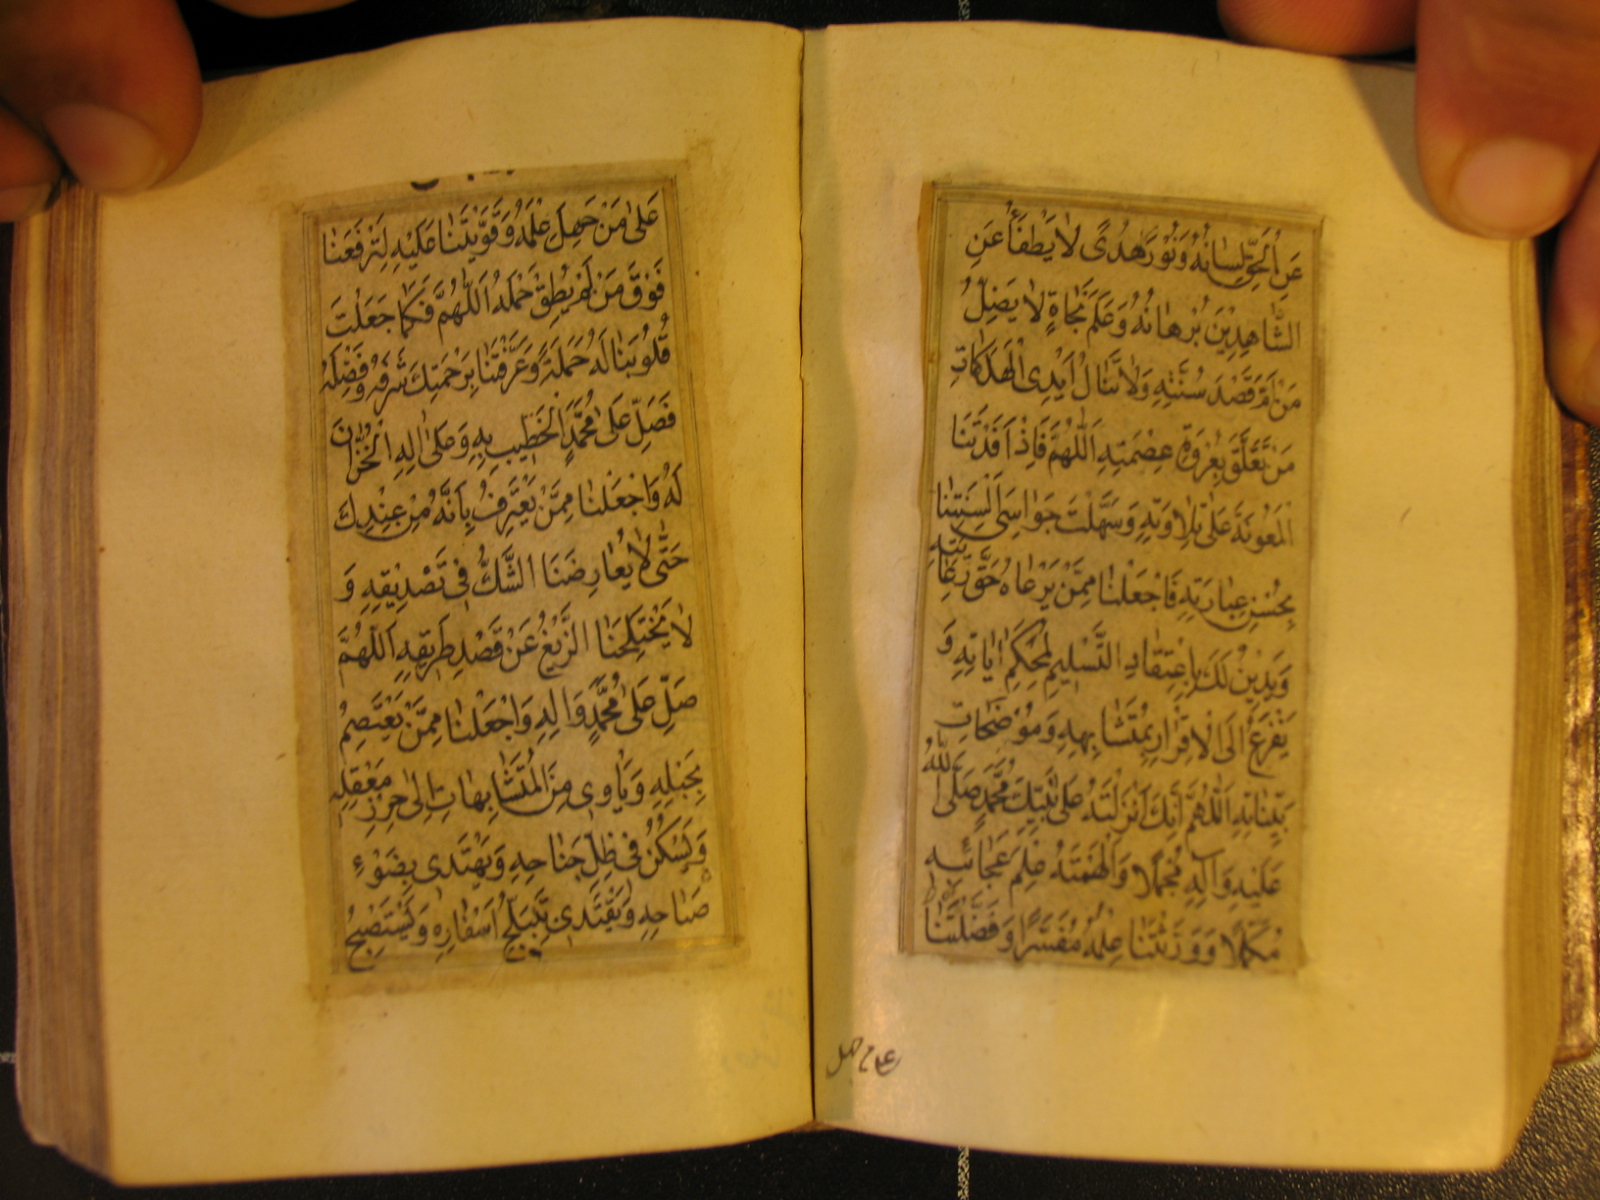 عَنِ الْحَقِّ لِسَانُهُ وَنُورَ هُدًى لَا يَطْفَأُ عَنِ
الشَّاهِدِينَ بُرْهَانُهُ وَعَلَمَ نَجَاةٍ لَا يَضِلُّ
مَنْ اَمَّ قَصْدَ سُنَّتِهِ وَلَا تَنَالُ اَيْدِى الْهَلَكَاتِ
مَنْ تَعَلَّقَ بِعُرْوَةِ عِصْمَتِهِ اَللّٰهُمَّ فَاِذْ اَفَدْتَنَا
الْمَعُونَةَ عَلَى تِلَاوَتِهِ وَسَهَّلْتَ جَوَاسِىَ اَلْسِنَتِنَا
بِحُسْنِ عِبَارَتِهِ فَاجْعَلْنَا مِمَّنْ يَرْعَاهُ حَقَّ رِعَايَتِهِ
وَيَدِينُ لَكَ بِاِعْتِقَادِ التَّسْلِيمِ لِمُحْكَمِ اٰيَاتِهِ وَ
يَفْزَعُ اِلَى الْاِقْرَارِ بِمُتَشَابِهِهِ وَمُوضَحَاتِ
بَيِّنَاتِهِ اَللّٰهُمَّ اِنَّكَ اَنْزَلْتَهُ عَلَى نَبِيِّكَ مُحَمَّدٍ صَلَّى اللّٰهُ
عَلَيْهِ وَاٰلِهِ مُجْمَلًا وَاَلْهَمْتَهُ عِلْمَ عَجَائِبِهِ
مُكَمَّلًا وَوَرَّثْتَنَا عِلْمَهُ مُفَسَّرًا وَفَضَّلْتَنَا
عَلَى مَنْ جَهِلَ عِلْمَهُ وَقَوَّيْتَنَا عَلَيْهِ لِتَرْفَعَنَا
فَوْقَ مَنْ لَمْ يُطِقْ حَمْلَهُ اَللّٰهُمَّ فَكَمَا جَعَلْتَ
قُلُوبَنَا لَهُ حَمَلَةً وَعَرَّفْتَنَا بِرَحْمَتِكَ شَرَفَهُ وَفَضْلَهُ
فَصَلِّ عَلَى مُحَمَّدٍ الْخَطِيبِ بِهِ وَعَلَى اٰلِهِ الْخُزَّانِ
لَهُ وَاجْعَلْنَا مِمَّنْ يَعْتَرِفُ بِاَنَّهُ مِنْ عِنْدِكَ
حَتَّى لَا يُعَارِضَنَا الشَّكُّ فِى تَصْدِيقِهِ وَ
لَا يَخْتَلِجَنَا الزَّيْغُ عَنْ قَصْدِ طَرِيقِهِ اَللّٰهُمَّ
صَلِّ عَلَى مُحَمَّدٍ وَاٰلِهِ وَاجْعَلْنَا مِمَّنْ يَعْتَصِمُ
بِحَبْلِهِ وَيَاْوِى مِنَ الْمُتَشَابِهَاتِ اِلَى حِرْزِ مَعْقِلِهِ
وَيَسْكُنُ فِى ظِلِّ جَنَاحِهِ وَيَهْتَدِى بِضَوْءِ
صَبَاحِهِ وَيَقْتَدِى بِتَبَلُّجِ اَسْفَارِهِ وَيَسْتَصْبِحُ